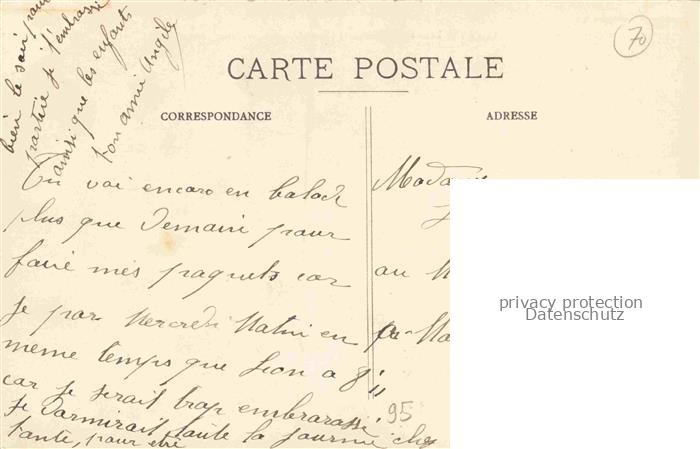 bien le soir pour
partire je t'embrasse
ainsi que les enfants
ton amie Angèle
70
CARTE POSTALE
CORRESPONDANCE
ADRESSE
Tu voi encore en balade
plus que Demain pour
faire mes paquets car
Je par Mercredi Matin en
meme temps que Leon a 8"
car je serait trop embrarassé
Je Darmirait toute la journee chez
tante, pour etre
Madame
au
95
privacy protection
Datenschutz